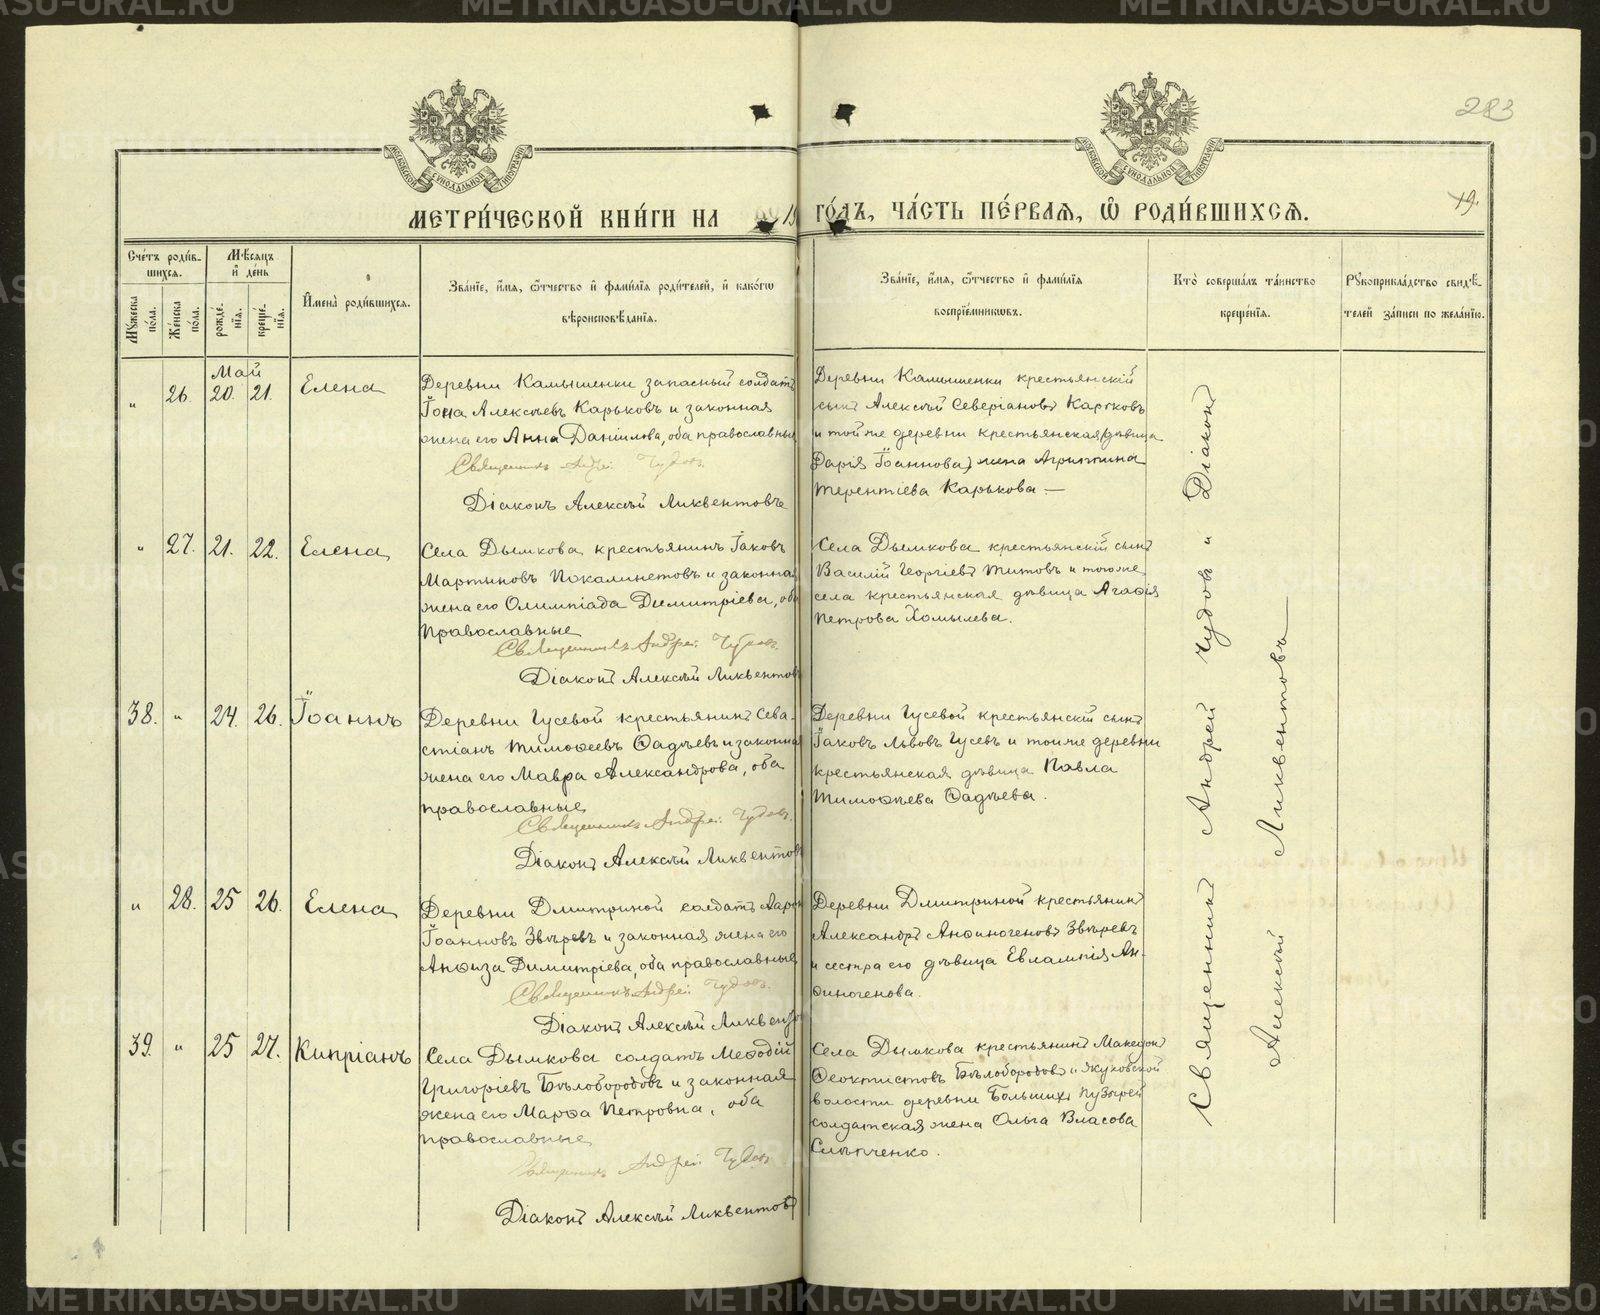 283
19.
МОСКОВСКОЙ СѴНОДАЛЬНОЙ ТИПОГРАФІИ
МОСКОВСКОЙ СѴНОДАЛЬНОЙ ТИПОГРАФІИ
МЕТРИ́ЧЕСКОЙ КНИ́ГИ НА 19 ГО́ДЪ, ЧА́СТЬ ПЕ́РВАЯ, Ѡ РОДИ́ВШИХСЯ.
Сче́тъ роди́в-
шихся.
Мѣ́сяцъ
и҆ де́нь
Мꙋжеска
по́ла.
Же́нска
по́ла.
рожде́-
нїя.
креще́-
нїя.
И҆мена̀ роди́вшихся.
Зва́нїе, и҆́мя, ѻ҆́тчество и҆ фами́лїя роди́телей, и҆ како́гѡ
вѣроисповѣ́данїя.
Зва́нїе, и҆́мя, ѻ҆́тчество и҆ фами́лїя
воспрїе́мникѡвъ.
Кто̀ соверша́лъ та́инство
креще́нїя.
Рꙋкоприкла́дство свидѣ́-
телей за́писи по жела́нїю.
Май
" 26. 20. 21. Елена
Деревни Камышенки запасный солдатъ
Іона Алексѣевъ Карьковъ и законная
жена его Анна Даніилова, оба православны
Священникъ Андрей Чудовъ.
Діаконъ Алексѣй Ликвентовъ
Деревни Камышенки крестьянскій
сынъ Алексѣй Северіановъ Карьковъ
и той же деревни крестьянская дѣвица
Дарія Іоаннова) жена Агриппина
Терентіева Карькова. —
" 27. 21. 22. Елена
Села Дымкова, крестьянинъ Іаковъ
Мартиновъ и законная
жена его Олимпіада Димитріева, оба
Православные
Священникъ Андрей Чудовъ.
Діаконъ Алексѣй Ликвентовъ
Села Дымкова крестьянскій сынъ
Василій Георгіевъ Титовъ и того же
села крестьянская дѣвица Агафія
Петрова Хомылева.
38. " 24. 26. Іоаннъ
Деревни Гусевой крестьянинъ Сева-
стіанъ Тимоѳеевъ Ѳадѣевъ и законна
жена его Мавра Александрова, оба
православные
Священникъ Андрей Чудовъ.
Діаконъ Алексѣй Ликвентовъ
Деревни Гусевой крестьянскій сынъ
Іаковъ Львовъ Гусевъ и той же деревни
крестьянская дѣвица Павла
Тимоѳеева Ѳадѣева.
" 28. 25 26. Елена
Деревни Дмитриной солдатъ Аарон
Іоанновъ Звѣревъ и законная жена его
Анѳиза Димитріева, оба православные
Священникъ Андрей Чудовъ.
Діаконъ Алексѣй Ликвентов
Деревни Дмитриной крестьянинъ
Александръ Анѳиногеновъ Звѣревъ
и сестра его дѣвица Евлампія Ан-
ѳиногенова.
39. " 25 27. Кипріанъ
Села Дымкова солдатъ Меѳодій
Григоріевъ Бѣлобородовъ и законная
жена его Марѳа Петровна, оба
православные
Священникъ Андрей Чудовъ
Діаконъ Алексѣй Ликвентовъ
Села Дымкова крестьянинъ Македон
Ѳеоктистовъ Бѣлобородовъ и Якуховской
волости деревни Большихъ Пузырей
солдатская жена Ольга Власова
Слѣпченко.
Священникъ Андрей Чудовъ " Діаконъ
Алексѣй Ликвентовъ
METRIKI.GASO-URAL.RU